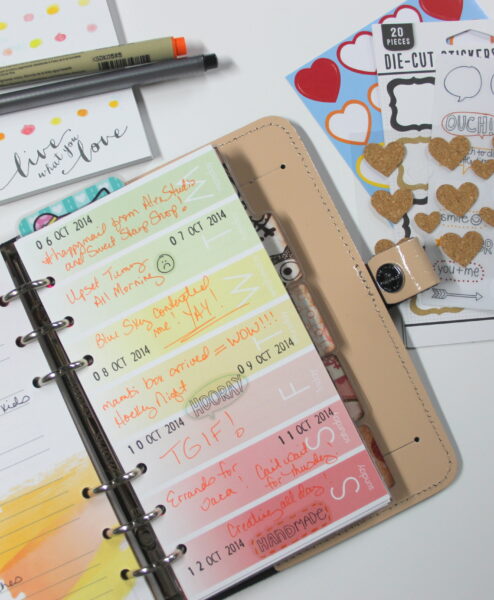 live
what you
love
20
PIECES
DIE-CUT STICKERS
OUCH!
smile
you + me
06 OCT 2014
M
#happymail from Alex Studio
and Sweet Stamp Shop!
07 OCT 2014
T
Upset Tummy
All Morning
W
Blue Sky contacted
me! YAY!
08 OCT 2014
T
mambi box arrived = WOW!!!
Hockey Night
09 OCT 2014
HOORAY
F
Friday
10 OCT 2014
TGIF!
11 OCT 2014
S
saturday
Errands for
Can't wait
for Thursday
S
sunday
Creative all day!
12 OCT 2014
HANDMADE